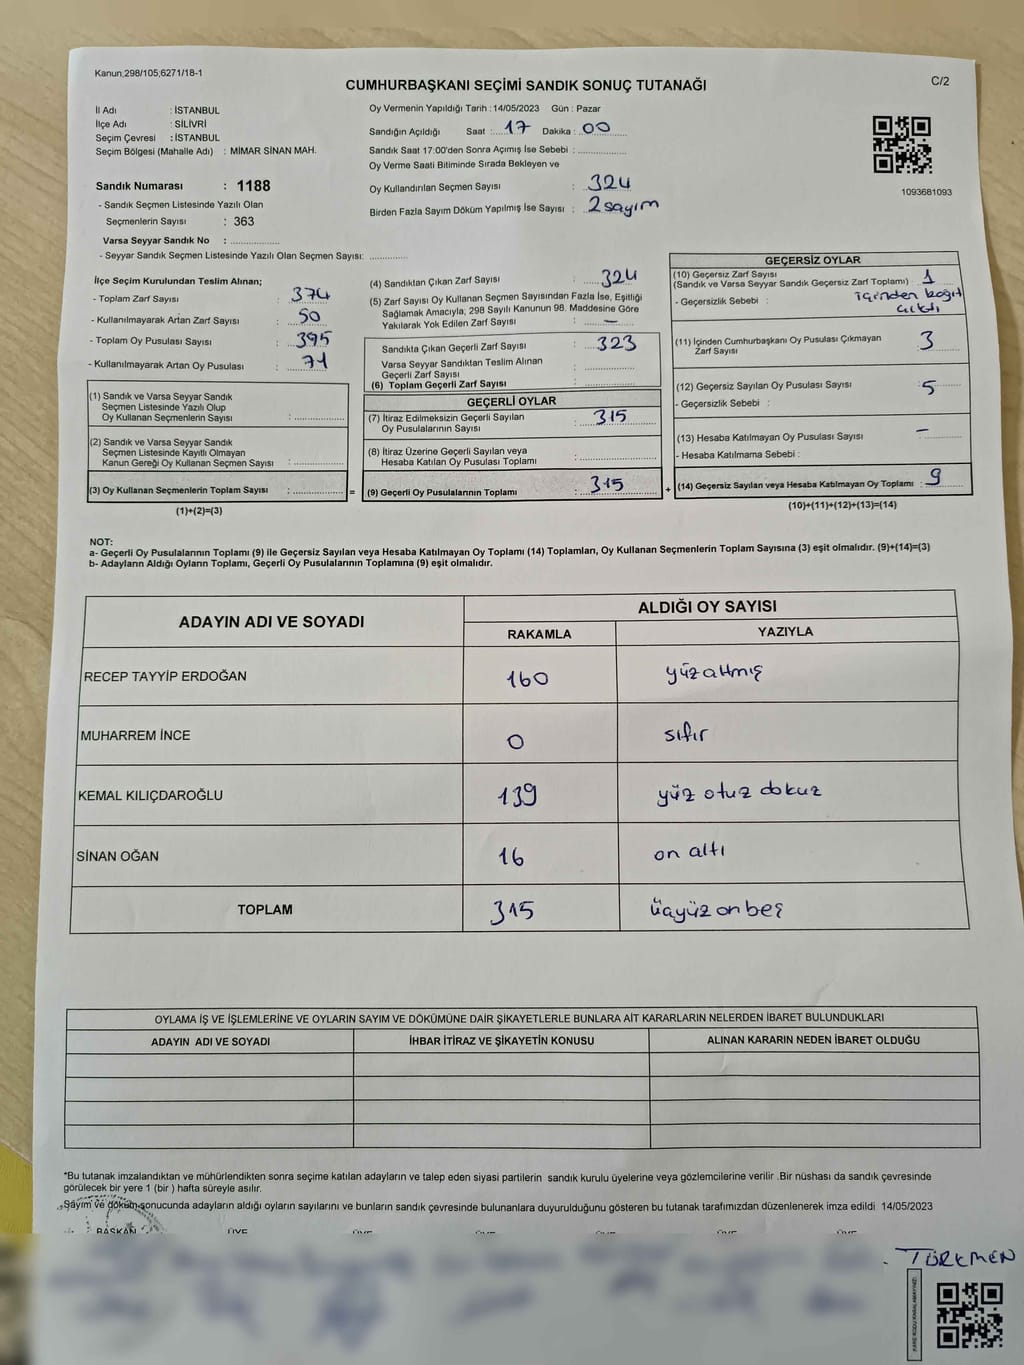 Kanun;298/105;6271/18-1
C/2
CUMHURBAŞKANI SEÇİMİ SANDIK SONUÇ TUTANAĞI
İl Adı : İSTANBUL
İlçe Adı : SİLİVRİ
Seçim Çevresi : İSTANBUL
Seçim Bölgesi (Mahalle Adı) : MİMAR SİNAN MAH.
Sandık Numarası : 1188
- Sandık Seçmen Listesinde Yazılı Olan
Seçmenlerin Sayısı : 363
Varsa Seyyar Sandık No : ................
- Seyyar Sandık Seçmen Listesinde Yazılı Olan Seçmen Sayısı: ............
Oy Vermenin Yapıldığı Tarih : 14/05/2023 Gün : Pazar
Sandığın Açıldığı Saat : 17 Dakika : 00
Sandık Saat 17:00'den Sonra Açımış İse Sebebi : ................
Oy Verme Saati Bitiminde Sırada Bekleyen ve
Oy Kullandırılan Seçmen Sayısı : 324
Birden Fazla Sayım Döküm Yapılmış İse Sayısı : 2 sayım
1093681093
İlçe Seçim Kurulundan Teslim Alınan;
- Toplam Zarf Sayısı : 374
- Kullanılmayarak Artan Zarf Sayısı : 50
- Toplam Oy Pusulası Sayısı : 395
- Kullanılmayarak Artan Oy Pusulası : 71
(1) Sandık ve Varsa Seyyar Sandık
Seçmen Listesinde Yazılı Olup
Oy Kullanan Seçmenlerin Sayısı : ................
(2) Sandık ve Varsa Seyyar Sandık
Seçmen Listesinde Kayıtlı Olmayan
Kanun Gereği Oy Kullanan Seçmen Sayısı : ................
(3) Oy Kullanan Seçmenlerin Toplam Sayısı : ................ =
(1)+(2)=(3)
(4) Sandıktan Çıkan Zarf Sayısı : 324
(5) Zarf Sayısı Oy Kullanan Seçmen Sayısından Fazla İse, Eşitliği
Sağlamak Amacıyla, 298 Sayılı Kanunun 98. Maddesine Göre
Yakılarak Yok Edilen Zarf Sayısı : –
Sandıkta Çıkan Geçerli Zarf Sayısı : 323
Varsa Seyyar Sandıktan Teslim Alınan
Geçerli Zarf Sayısı : ................
(6) Toplam Geçerli Zarf Sayısı : ................
GEÇERLİ OYLAR
(7) İtiraz Edilmeksizin Geçerli Sayılan
Oy Pusulalarının Sayısı : 315
(8) İtiraz Üzerine Geçerli Sayılan veya
Hesaba Katılan Oy Pusulası Toplamı : ................
(9) Geçerli Oy Pusulalarının Toplamı : 315 +
GEÇERSİZ OYLAR
(10) Geçersiz Zarf Sayısı
(Sandık ve Varsa Seyyar Sandık Geçersiz Zarf Toplamı) : 1
- Geçersizlik Sebebi : içinden kağıt
çıktı
(11) İçinden Cumhurbaşkanı Oy Pusulası Çıkmayan
Zarf Sayısı : 3
(12) Geçersiz Sayılan Oy Pusulası Sayısı : 5
- Geçersizlik Sebebi :
(13) Hesaba Katılmayan Oy Pusulası Sayısı : –
- Hesaba Katılmama Sebebi :
(14) Geçersiz Sayılan veya Hesaba Katılmayan Oy Toplamı : 9
(10)+(11)+(12)+(13)=(14)
NOT:
a- Geçerli Oy Pusulalarının Toplamı (9) ile Geçersiz Sayılan veya Hesaba Katılmayan Oy Toplamı (14) Toplamları, Oy Kullanan Seçmenlerin Toplam Sayısına (3) eşit olmalıdır. (9)+(14)=(3)
b- Adayların Aldığı Oyların Toplamı, Geçerli Oy Pusulalarının Toplamına (9) eşit olmalıdır.
ADAYIN ADI VE SOYADI
ALDIĞI OY SAYISI
RAKAMLA YAZIYLA
RECEP TAYYİP ERDOĞAN 160 yüzaltmış
MUHARREM İNCE 0 sıfır
KEMAL KILIÇDAROĞLU 139 yüz otuz dokuz
SİNAN OĞAN 16 on altı
TOPLAM 315 üçyüz on beş
OYLAMA İŞ VE İŞLEMLERİNE VE OYLARIN SAYIM VE DÖKÜMÜNE DAİR ŞİKAYETLERLE BUNLARA AİT KARARLARIN NELERDEN İBARET BULUNDUKLARI
ADAYIN ADI VE SOYADI İHBAR İTİRAZ VE ŞİKAYETİN KONUSU ALINAN KARARIN NEDEN İBARET OLDUĞU
*Bu tutanak imzalandıktan ve mühürlendikten sonra seçime katılan adayların ve talep eden siyasi partilerin sandık kurulu üyelerine veya gözlemcilerine verilir .Bir nüshası da sandık çevresinde
görülecek bir yere 1 (bir ) hafta süreyle asılır.
Sayım ve döküm sonucunda adayların aldığı oyların sayılarını ve bunların sandık çevresinde bulunanlara duyurulduğunu gösteren bu tutanak tarafımızdan düzenlenerek imza edildi 14/05/2023
BAŞKAN ÜYE ÜYE ÜYE ÜYE ÜYE ÜYE
TÜRKMEN
KARE KODU KARALAMAYINIZ!